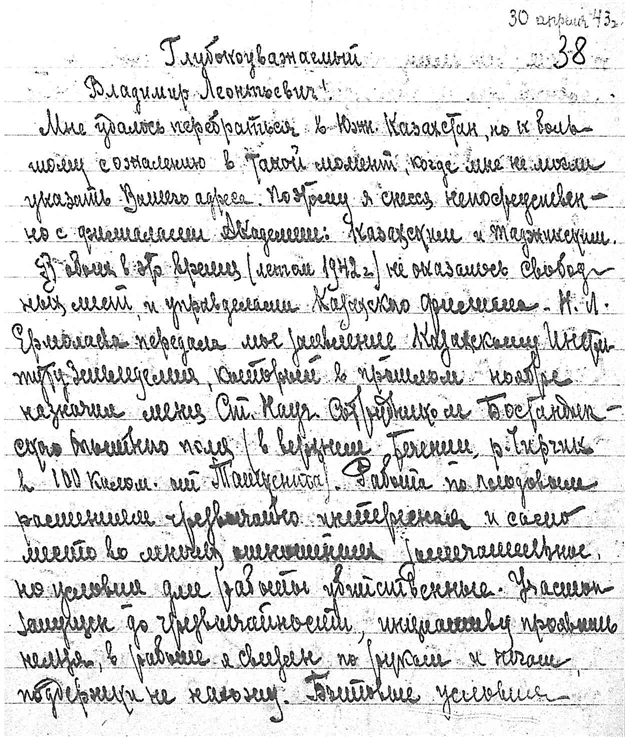 30 апреля 43 г.
38
Глубокоуважаемый
Владимир Леонтьевич!
Мне удалось перебраться в Южн. Казахстан, но к боль-
шому сожалению в такой момент, когда мне не могли
указать Вашего адреса. Поэтому я снесся непосредственн-
но с филиалами Академии: Казахским и Таджикским.
В обоих в это время (летом 1942 г) не оказалось свобод-
ных мест, и управделами Казахского филиала - Н. Л.
Ермолаева передала мое заявление Казахскому Инсти-
туту Земледелия, который в прошлом ноябре
назначил меня Ст. Научн. Сотрудником Бостандык-
ского опытного поля (в верхнем течении р. Чирчик
в 100 килом. от Ташкента). Работа по плодовым
растениям чрезвычайно интересная и само
место во многих отношениях замечательное,
но условия для работы убийственные. Участок
запущен до чрезвычайности, инициативу проявить
нельзя, в работе я связан по рукам и ногам,
поддержки не нахожу. Бытовые условия